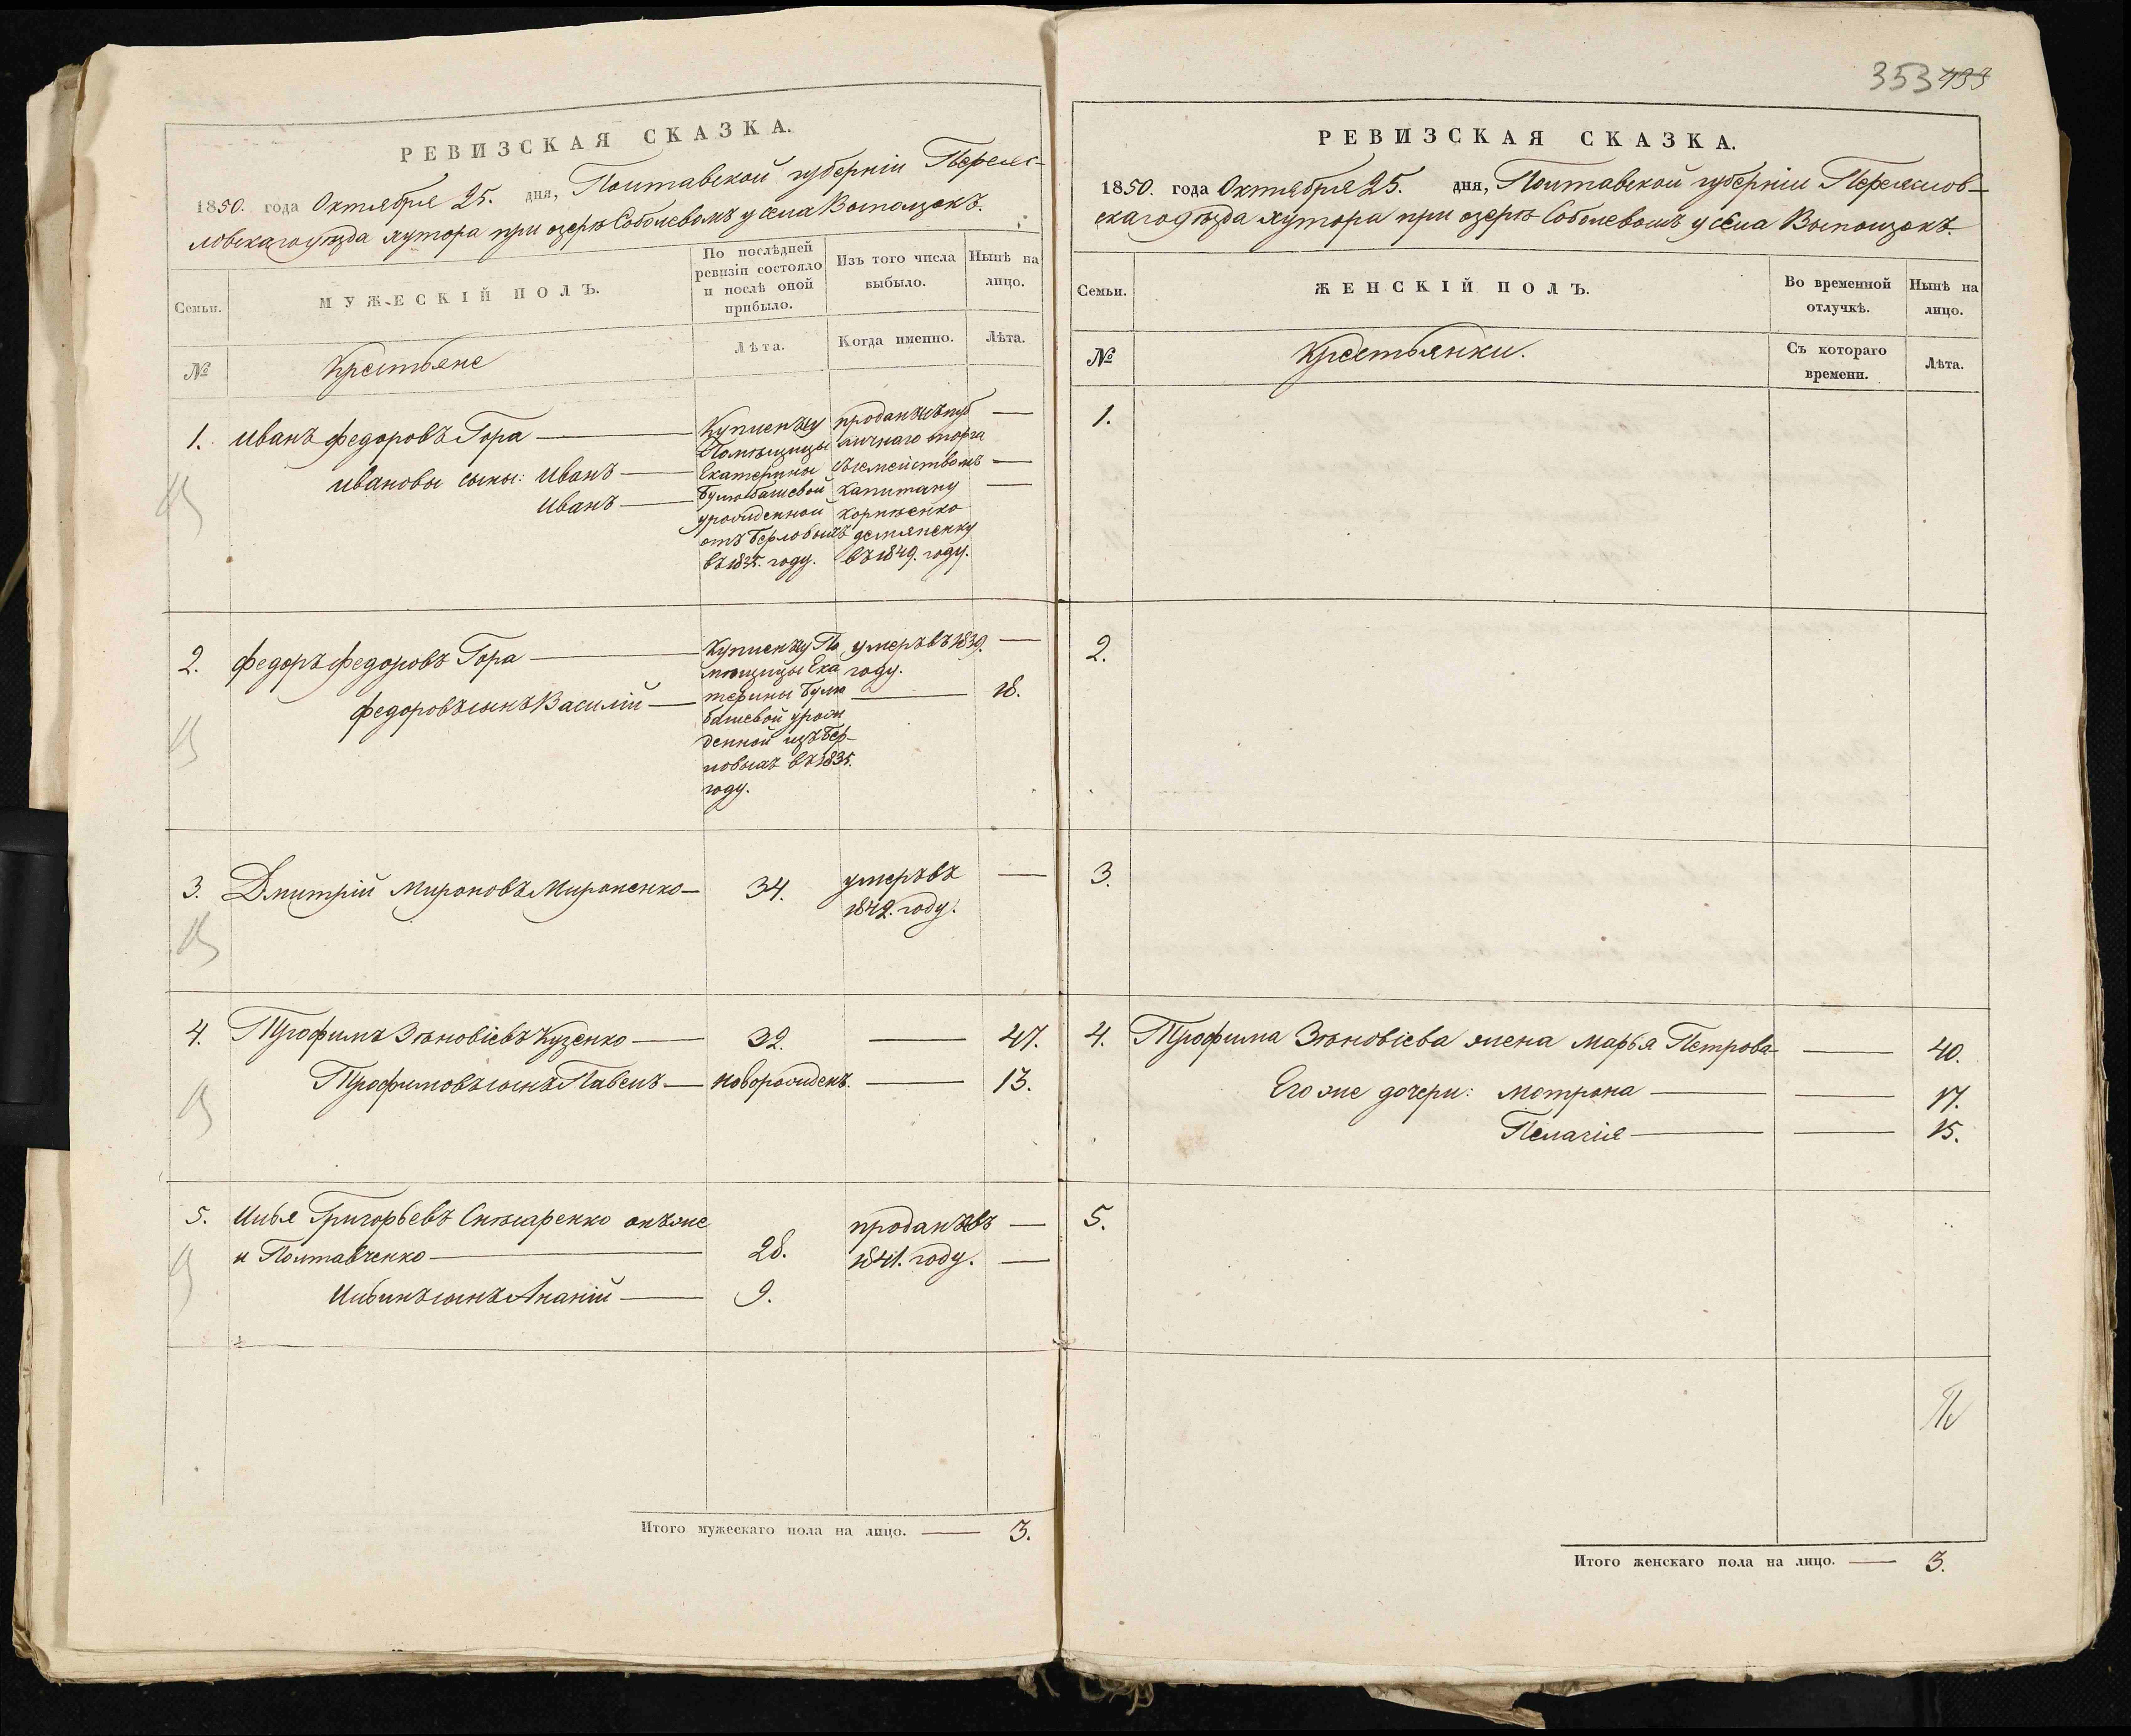 353 433
РЕВИЗСКАЯ СКАЗКА.
1850. года Октября 25. дня, Полтавской губерніи Переяс-
ловскаго уѣзда хутора при озерѣ Соболевомъ у села Выползокъ.
Семьи.
МУЖЕСКІЙ ПОЛЪ.
По послѣдней
ревизіи состояло
и послѣ оной
прибыло.
Изъ того числа
выбыло.
Нынѣ на
лицо.
№
Крестьяне
Лѣта.
Когда именно.
Лѣта.
1. Иванъ Федоровъ Гора —
Ивановы сыны: Иванъ —
Иванъ —
Купленъ у
Помѣщицы
Екатерины
Булюбашевой
урожденной
отъ Берловыхъ
въ 1835. году.
проданъ съ пуб
личнаго торга
съ семействомъ
Капитану
Корнѣенко
демяненку
въ 1849. году.
—
—
—
2. Федоръ Федоровъ Гора —
Федоровъ сынъ Василій —
Купленъ у По
мѣщицы Ека
терины Булю
башевой урож
денной изъ Бер-
ловыхъ въ 1835.
году.
умеръ въ 1839.
году.
—
— 18.
3. Дмитрій Мироновъ Мироненко — 34. умеръ въ —
1842. году.
4. Трофимъ Зѣновіевъ Куценко — 32. — 47.
Трофимовъ сынъ Павелъ — новорожденъ. — 13.
5. Илья Григорьевъ Слѣсаренко онъ же
и Полтавченко — 28.
Ильинъ сынъ Ананій — 9.
проданъ въ —
1841. году. —
Итого мужескаго пола на лицо. — 3.
РЕВИЗСКАЯ СКАЗКА.
1850. года Октября 25. дня, Полтавской губерніи Переяслов-
скаго уѣзда хутора при озерѣ Соболевомъ у села Выползокъ.
Семьи.
ЖЕНСКІЙ ПОЛЪ.
Во временной
отлучкѣ.
Нынѣ на
лицо.
№
Крестьянки.
Съ котораго
времени.
Лѣта.
1.
2.
3.
4. Трофима Зѣновіева жена Марья Петрова — 40.
Его же дочери: Мотрона — — 17.
Пелагія — — 15.
5.
Итого женскаго пола на лицо. — 3.